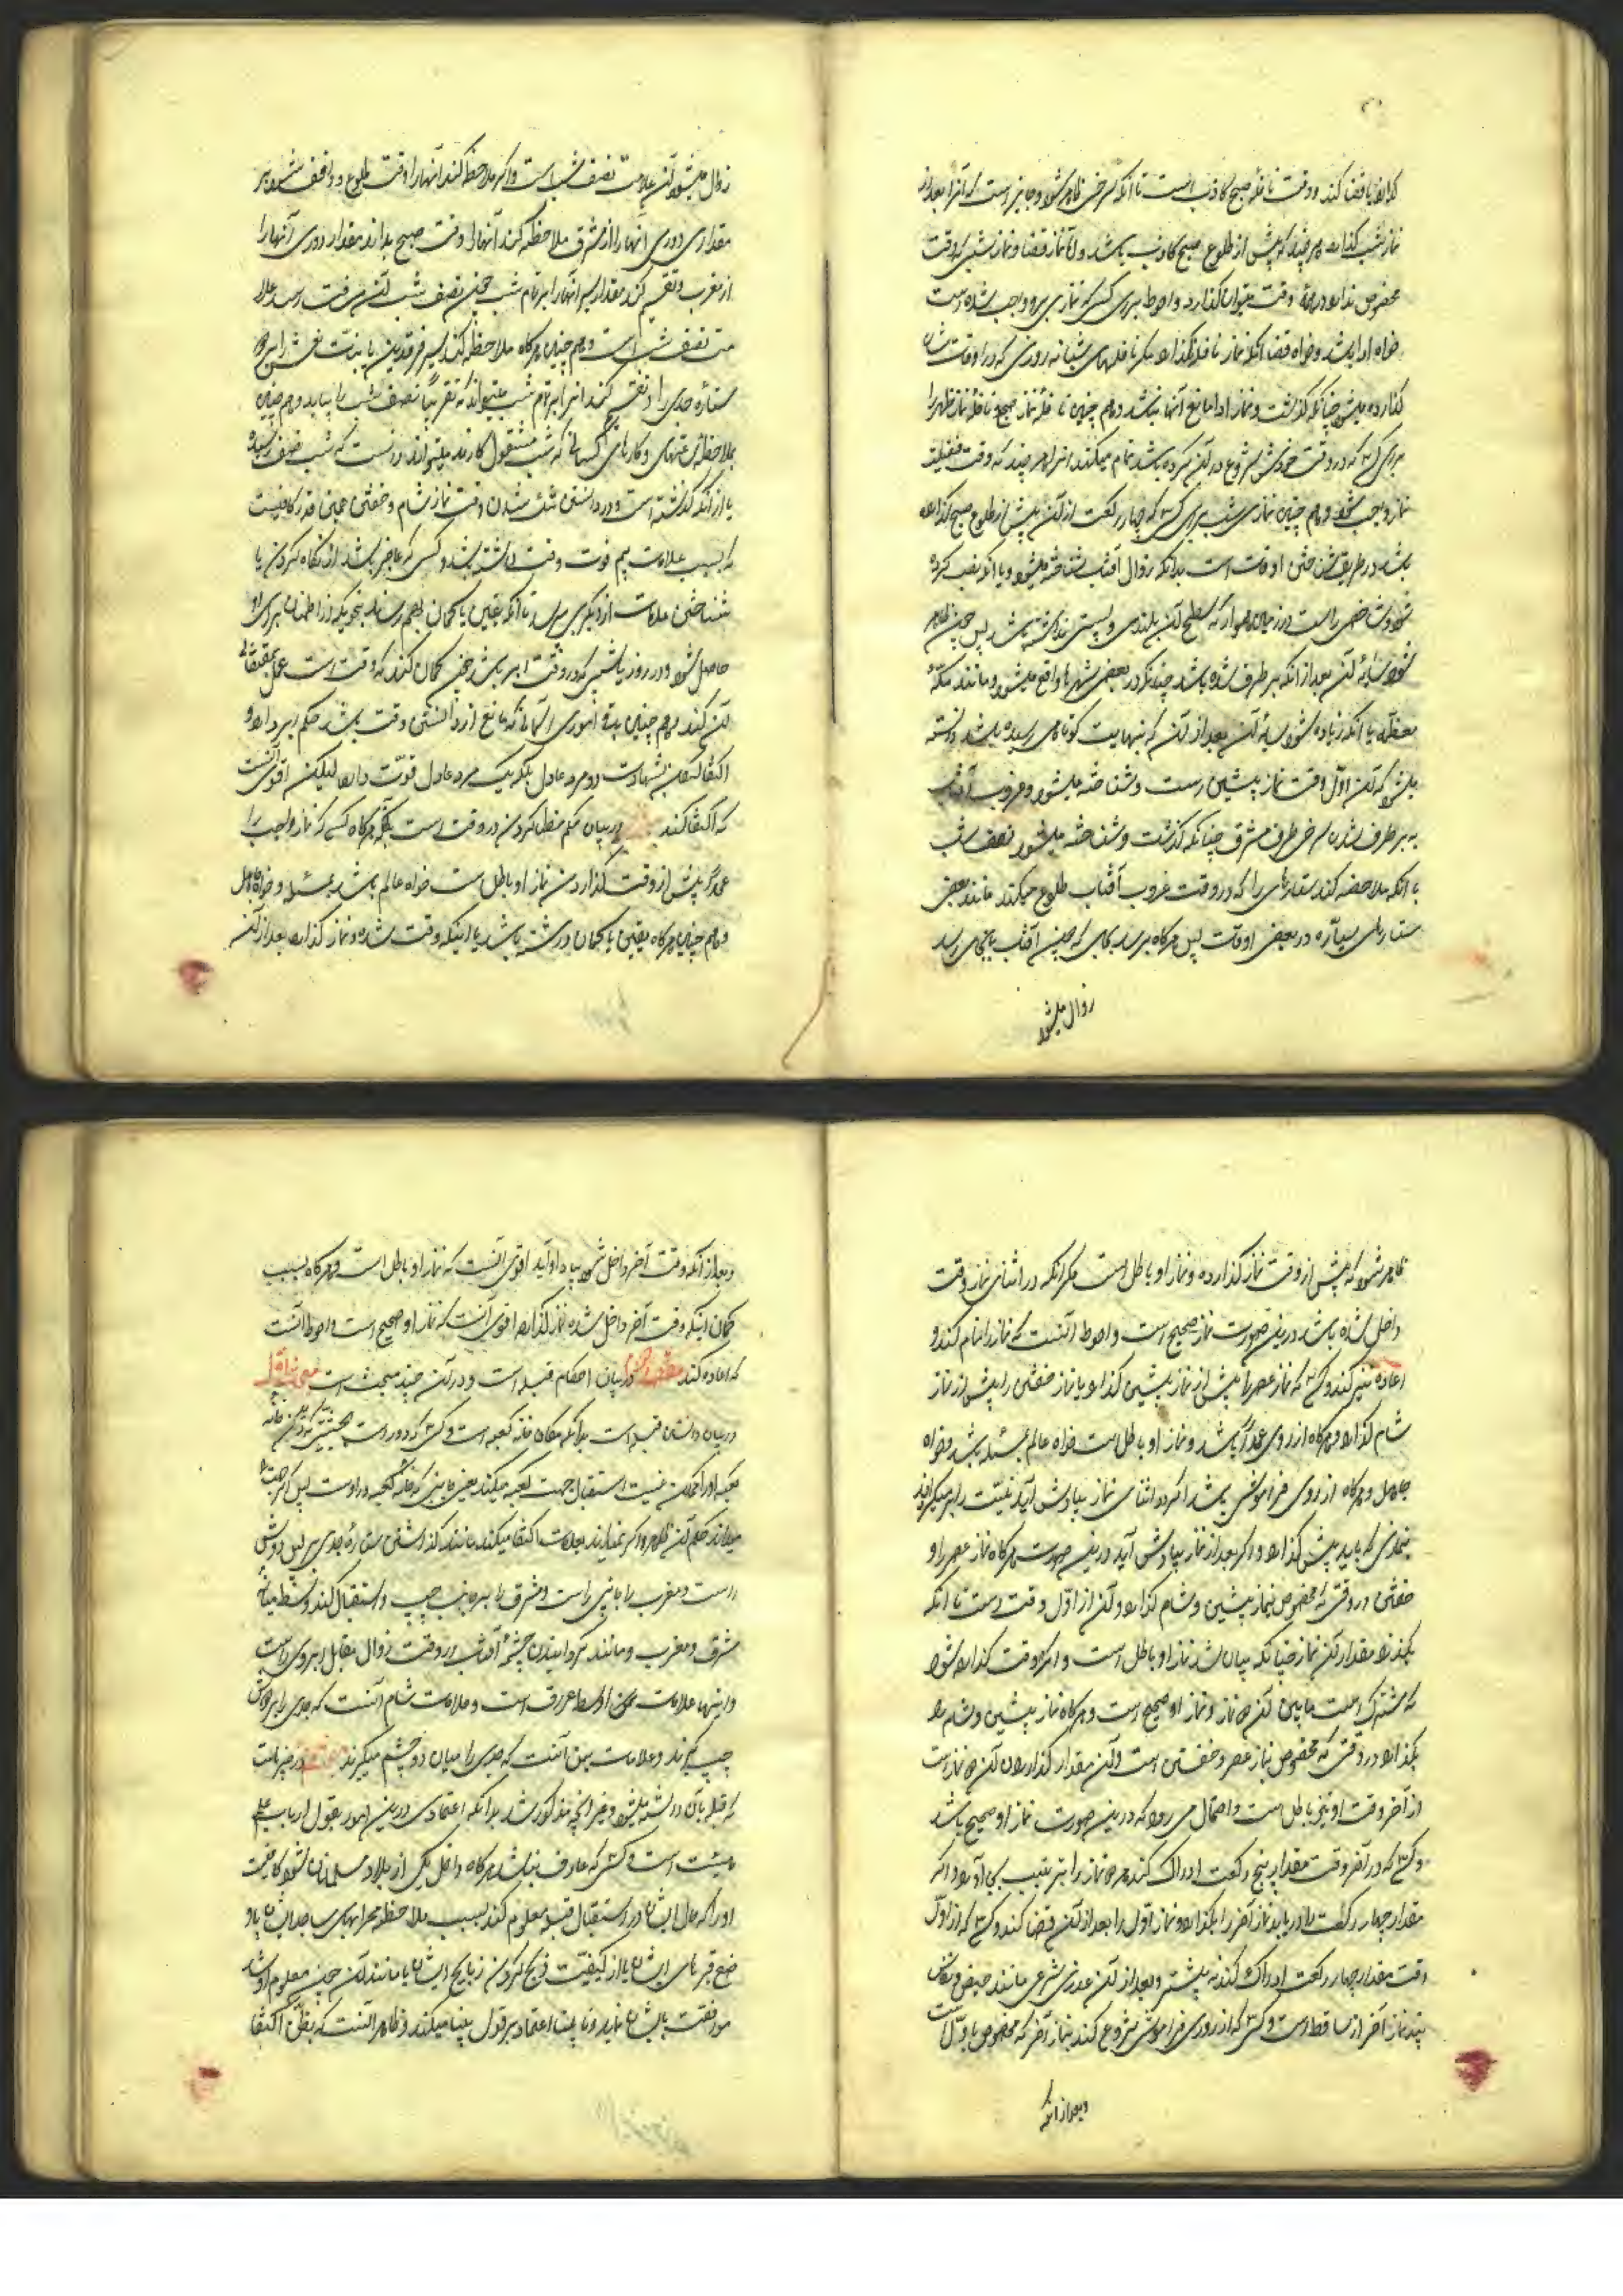 که او را قضا کند و وقت نافلهٔ صبح کاذب است تا آنکه سرخی ظاهر شود و جایز است که آنرا بعد از
نماز شب گذارد هر چند که پیش از طلوع صبح کاذب باشد و اما نماز قضا و نماز وقت
مخصوص ندارد در همهٔ وقت میتوان گذارد و احوط برای کسی که نمازی بر او واجب شده است
خواه ادا باشد و خواه قضا آنکه نماز نافله نگذارد مگر نافلهای شبانه روزی که در اوقات شان
گذارده میشود چنانکه گذشت و نماز ادا مانع آنها نباشد و هم چنین نافلهٔ نماز صبح و نافلهٔ نماز ظهر را
برای کسی که در وقت خودش شروع در آن کرده باشد تمام میکند هر چند که وقت فضیلت
نماز واجب شود و هم چنین نماز شب برای کسی که چهار رکعت از آن پیش از طلوع صبح گذارده
باشد در طریق شناختن اوقات است بدانکه زوال آفتاب شناخته میشود و با آنکه نصب کرده
شود شاخص راست در زمین هموار که سطح آن بلندی و پستی نداشته باشد پس چون ظاهر
شود سایهٔ آن بعد از آنکه بر طرف شده باشد چنانکه در بعضی شهرها واقع میشود مانند مکهٔ
معظمه یا آنکه زیاده شود سایهٔ آن بعد از آن که بنهایت کوتاهی رسیده باشد دانسته
میشود که آن اول وقت نماز پیشین است و شناخته میشود غروب آفتاب
به بر طرف شدن سرخی طرف مشرق چنانکه گذشت و شناخته میشود نصف شب
با آنکه ملاحظه کند ستارهای را که در وقت غروب آفتاب طلوع میکند مانند بعضی
ستارهای سیاره در بعضی اوقات پس هرگاه برسد بجای که چون آفتاب بانجای رسد
زوال میشود
زوال میشود آن علامت نصف شب است و اگر ملاحظه کند آنها را وقت طلوع و واقف شود بر
مقداری دوری آنها را از مشرق ملاحظه کند آنها را وقت صبح بداند مقدار دوری آنها را
از مغرب و تقسیم کند مقدار سیر آنها را بر تمام شب چون نصف شب آن رسد علا
مت نصف شب است و هم چنین هرگاه ملاحظه کند سیر فرقدین یا بنات نعش را بر دور
ستاره جدی را و تقسیم کند آنرا بر تمام شب میتواند که تقریباً نصف شب را بیابد و هم چنین
بملاحظه و کارهای کسانی که شب مشغول کارند میتواند دانست که شب نصف رسیده
یا از آنکه گذشته است و در دانستن وقت نماز شام و خفتن همین قدر کافیست
که بسبب علامت بیم فوت وقت نداشته باشد و کسی که عاجز باشد از نگاه کردن یا
شناختن علامات از دیگری بپرسد تا آنکه یقین یا گمان بهم رساند بنحویکه اطمینان برای او
حاصل شود و در روز یا شبی که در وقت ابر باشد چون گمان کند که وقت است عمل بمقتضای
آن کند و هم چنین باقی اموری آسمانی که مانع از دانستن وقت باشد حکم ابر دارد و
اکتفا کردن بشهادت دو مرد عادل بلکه یک مرد عادل قوت دارد لیکن اقوی آنست
که اکتفا کند در بیان حکم خلل کردن در وقت است بدانکه هرگاه کسی که نماز واجب را
عمداً پیش از وقت گذارد آن نماز او باطل است خواه عالم باشد بمسئله و خواه جاهل
و هم چنین هرگاه یقین یا گمان داشته باشد باینکه وقت شده و نماز گذارد بعد از آن
ظاهر شود که پیش از وقت نماز گذارده و نماز او باطل است مگر آنکه در اثنای نماز وقت
داخل شده باشد درین صورت نماز صحیح است و احوط آنست که نماز را تمام کند و
اعاده نیز کند و کسی که نماز عصر را پیش از نماز پیشین گذارد یا نماز خفتن را پیش از نماز
شام گذارد هرگاه از روی عمد باشد و نماز او باطل است خواه عالم بمسئله باشد و خواه
جاهل و هرگاه از روی فراموشی باشد اگر در اثنای نماز بیادش آید نیت را بر میگرداند
بنمازی که باید پیش گذارد و اگر بعد از نماز بیادش آید درین صورت هرگاه نماز عصر را و
خفتن در وقتی که مخصوص نماز پیشین و شام گذارد و آن از اول وقت است تا آنکه
بگذرد مقدار آن نماز چنانکه بیان شد نماز او باطل است و اگر در وقت گذارده شود
که مشترک است مابین آن دو نماز و نماز او صحیح است و هرگاه نماز پیشین و شام را
بگذارد در وقتی که مخصوص نماز عصر و خفتن است و آن مقدار گذاردن آن دو نماز است
از آخر وقت او نیز باطل است و احتمال می رود که درین صورت نماز او صحیح باشد
و کسی که در آخر وقت مقدار پنج رکعت ادراک کند هر دو نماز را بترتیب بجا آورد و اگر
مقدار چهار رکعت را دریابد نماز آخر را بگذارد و نماز اول را بعد از آن قضا کند و کسی که از اول
وقت مقدار چهار رکعت ادراک کند نه بیشتر و بعد از آن عذری شرعی مانند حیض و نفاس
نماز آخر از او ساقط است و کسی که از روی فراموشی شروع کند بنماز آخر که مخصوص باول است
و بعد از آنکه
و بعد از آنکه وقت آخر داخل شود بیاد او آید اقوی آنست که نماز او باطل است و هرگاه بسبب
گمان اینکه وقت آخر داخل شده نماز گذارد اقوی آنست که نماز او صحیح است و احوط آنست
که اعاده کند در بیان احکام قبله است و در آن چند مبحث است مبحث اول
در بیان دانستن قبله است بدانکه مکان خانهٔ کعبه است و کسی که دور است
بعینه او را ممکن نیست استقبال جهت کعبه میکند یعنی جانبی که خانهٔ کعبه در اوست پس اگر جهت
میداند حکم آن ظاهر و اگر نمیداند بعلامت اکتفا میکند مانند گذاشتن ستارهٔ جدی بر پس دوش
راست و مغرب را بجانب راست و مشرق را بر جانب چپ و استقبال کند وسط میانهٔ
مشرق و مغرب و مانند گردانیدن چشمهٔ آفتاب در وقت زوال مقابل ابروی راست
و اینها علامات اواسط عراق است و علامات شام آنست که جدی را بر دوش
چپ گیرند و علامات یمن آنست که جدی را میان دو چشم میگیرند
که قبله بآن دانسته میشود و غیر آنچه مذکور شد بدانکه اعتمادی درین امور بقول ارباب علم
هیئت است و کسی که عارف نباشد هرگاه داخل یکی از بلاد مسلمانان شود کافیست
او را که حال ایشان در استقبال قبله معلوم کند بسبب ملاحظه محرابهای مساجد ایشان یا و
ضع قبرهای ایشان یا از کیفیت ذبح کردن ذبایح ایشان یا مانند آن چون معلوم او شد
موافقت بایشان نماید و نابینا اعتماد بر قول بینا میکند و ظاهر آنست که بظن اکتفا